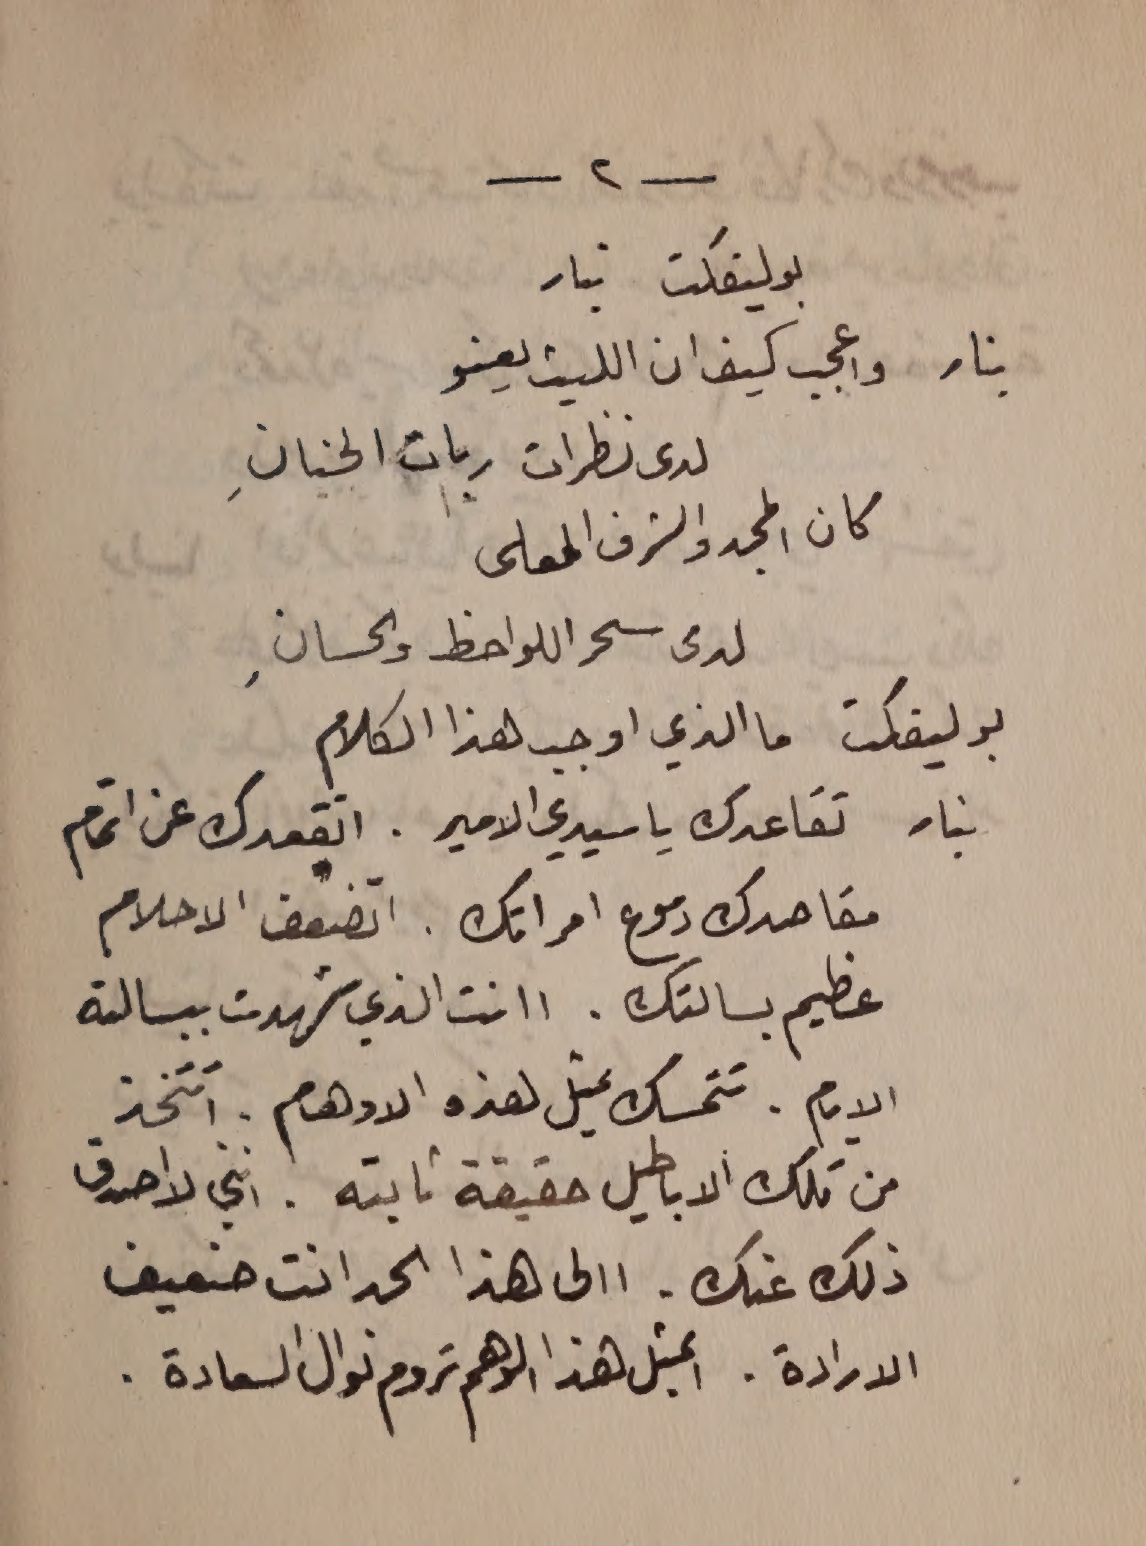 — ٢ —
بوليفكت نيار
نيار واعجب كيف ان الليث يعنو
لدى نظرات ربات الجنان
كان المجد والشرف المعلى
لدى سحر اللواحظ والحسان
بوليفكت ما الذي اوجب هذا الكلام
نيار تقاعدك يا سيدي الامير . اتقعدك عن اتمام
مقاصدك دموع امراتك . اتضعف الاحلام
عظيم بسالتك . اانت الذي شهدت ببسالته
الايام . تتمسك بمثل هذه الاوهام . أتتخذ
من تلك الاباطيل حقيقة ثابته . انني لا اصدق
ذلك عنك . االى هذا الحد انت ضعيف
الارادة . ابمثل هذا الوهم تروم نوال السعادة .